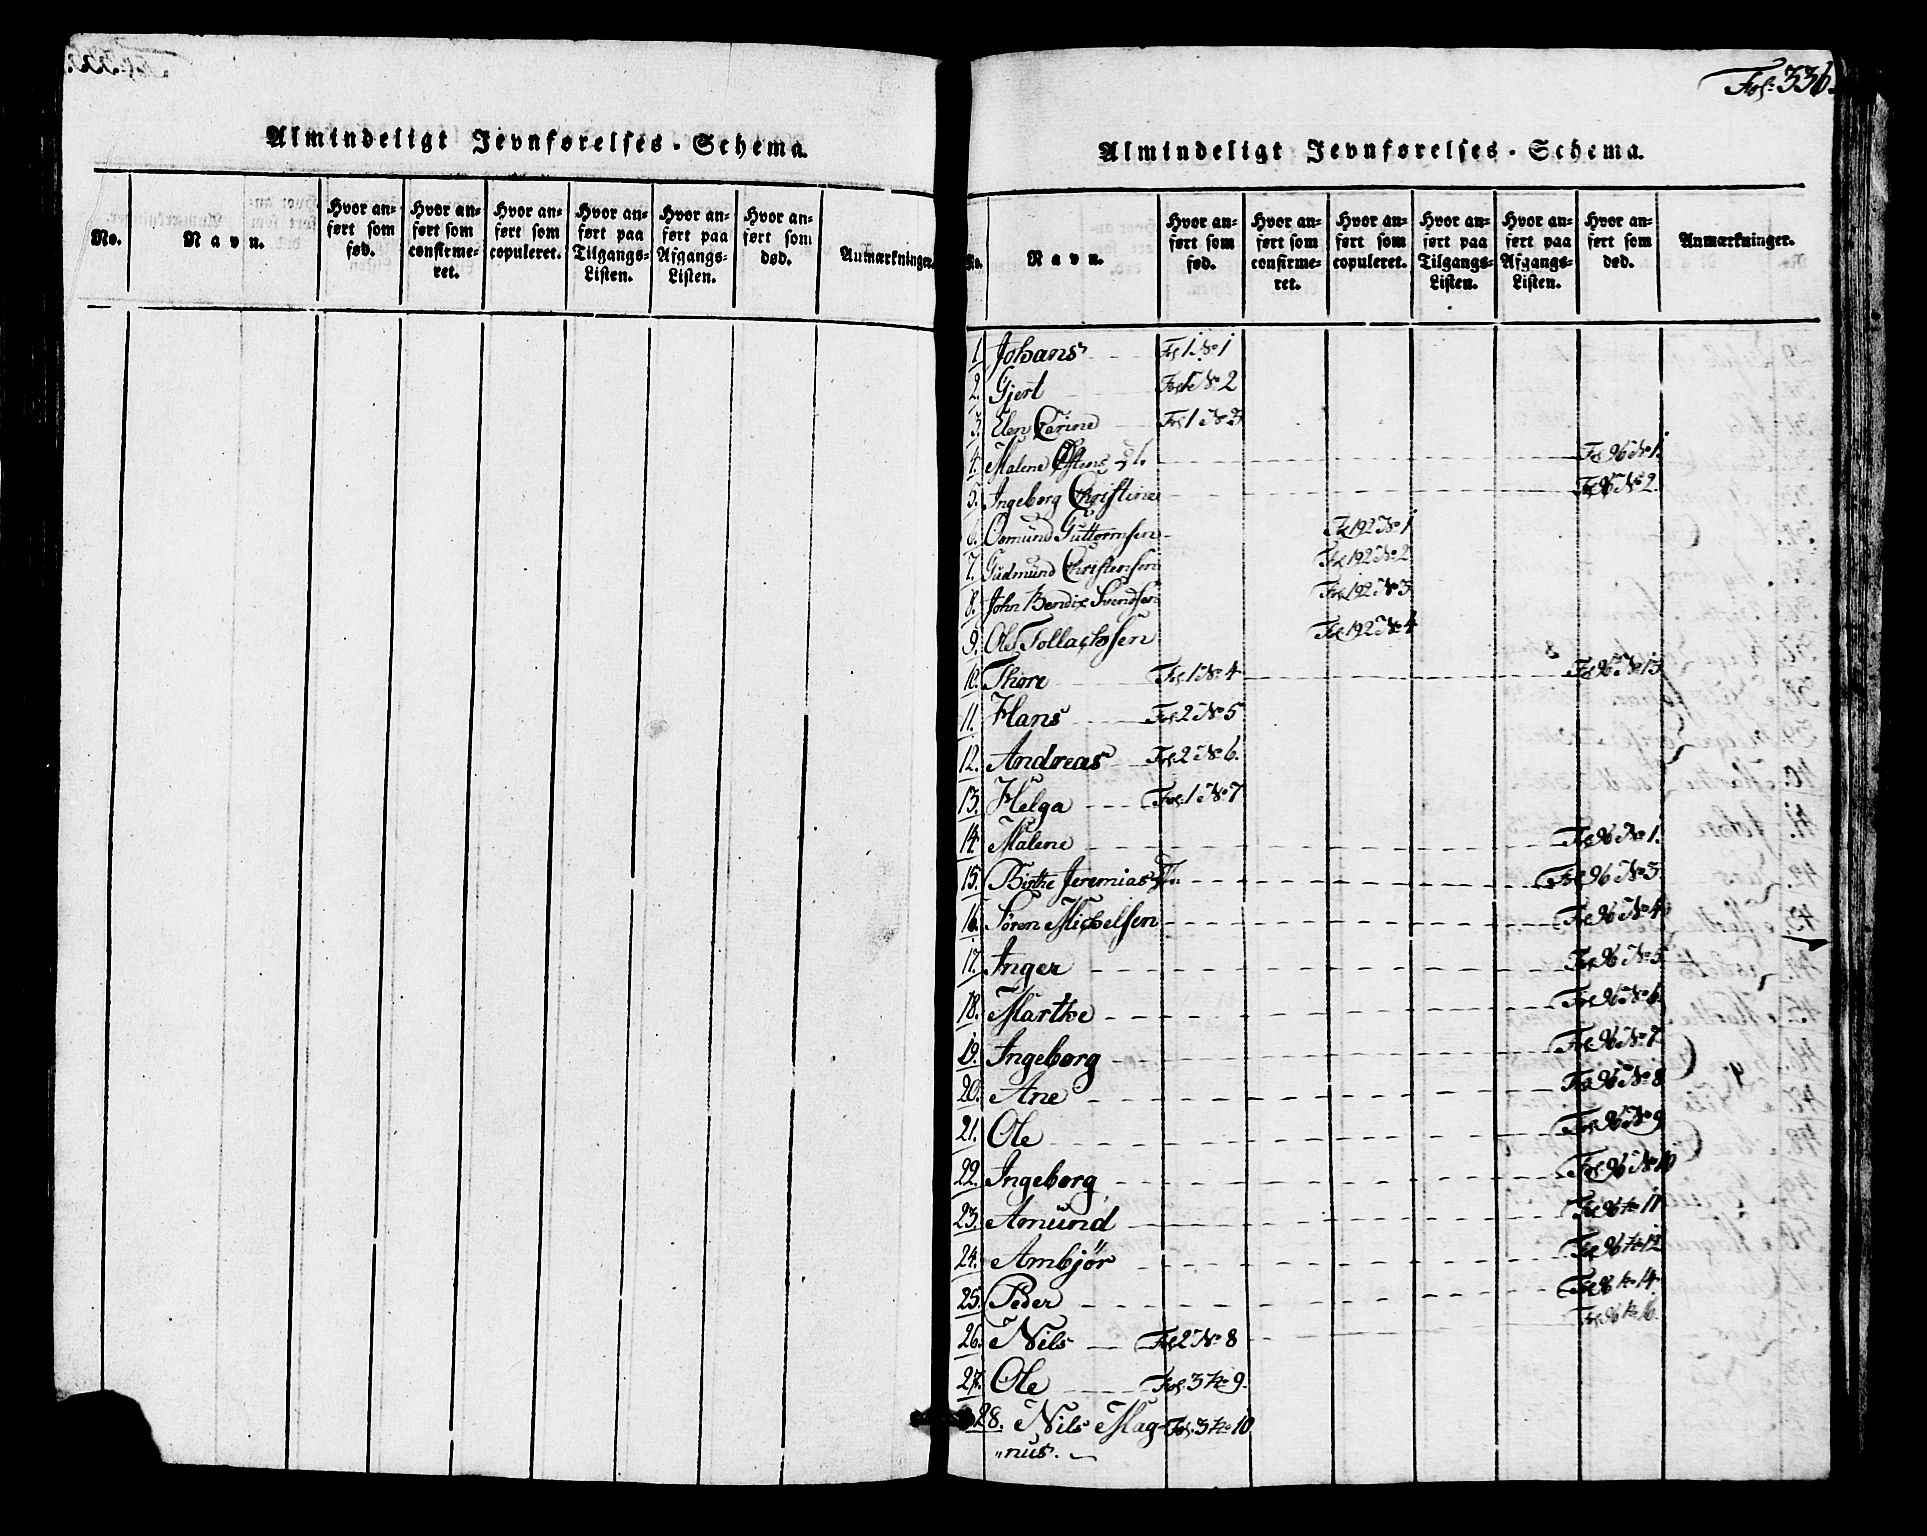 Almindeligt Jevnførelses-Schema.
No. Navn. Hvor anført som fød. Hvor anført som confirmeret. Hvor anført som copuleret. Hvor anført paa Tilgangs-Listen. Hvor anført paa Afgangs-Listen. Hvor anført som død. Anmærkninger.
Fol: 336.
Almindeligt Jevnførelses-Schema.
No. Navn. Hvor anført som fød. Hvor anført som confirmeret. Hvor anført som copuleret. Hvor anført paa Tilgangs-Listen. Hvor anført paa Afgangs-Listen. Hvor anført som død. Anmærkninger.
1. Johans Fol 1 No 1
2. Gjert Fol 1 No 2
3. Elen Carine Fol 1 No 3
4. Malene Fol 96 No 1.
5. Ingeborg Christine Fol 96 No 2.
6. Osmund Guttormsen Fol 192 No 1
7. Gudmund Christensen Fol 192 No 2
8. John Bendix Svendsen Fol 192 No 3
9. Ole Tollachsen Fol 192 No 4
10. Thore Fol 1 No 4 Fol 96 No 13
11. Hans Fol 2 No 5
12. Andreas Fol 2 No 6.
13. Helga Fol. 1 No 7
14. Malene Fol 96 No 1.
15. Birthe Jeremias Fol 96 No 3
16. Søren Michelsen Fol 96 No 4
17. Inger Fol 96 No 5
18. Marthe Fol 96 No 6.
19. Ingeborg Fol 96 No 7
20. Ane Fol 96 No 8
21. Ole Fol 96 No 9
22. Ingeborg Fol 96 No 10
23. Amund Fol 96 No 11
24. Ambjör Fol 96 No 12
25. Peder Fol 96 No 14.
26. Nils Fol 2 No 8 Fol 96 No 16.
27. Ole Fol. 3 No 9.
28. Nils Mag- Fol. 3 No 10
"nus.